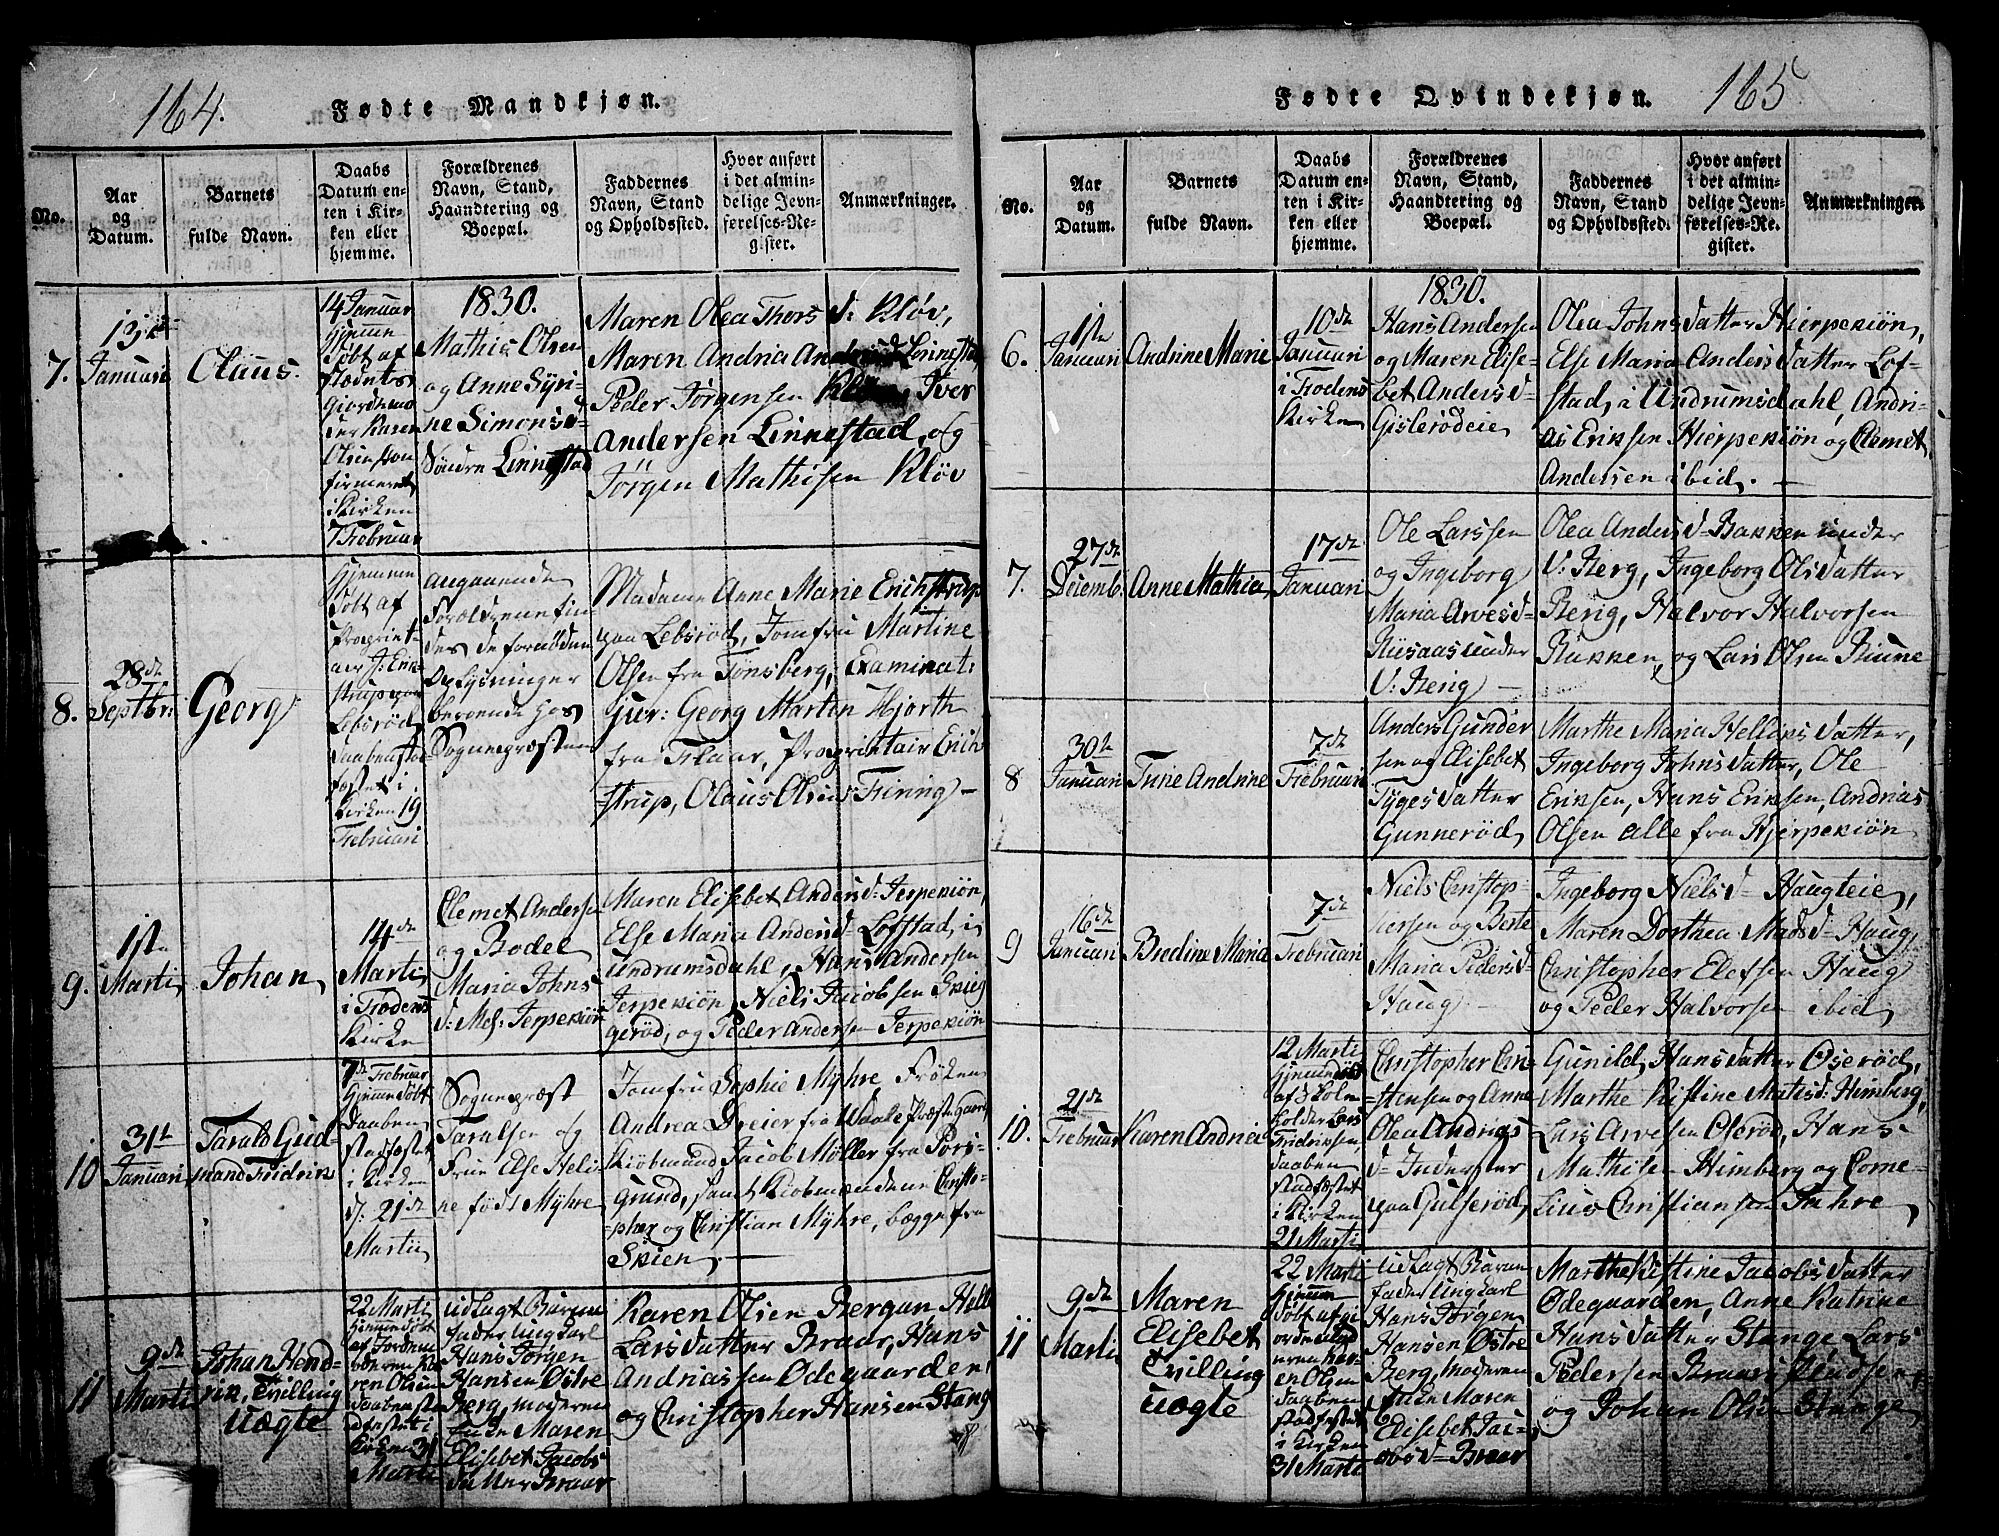 164.
Fødte Mandkjøn.
No.
Aar
og
Datum.
Barnets
fulde Navn.
Daabs
Datum en-
ten i Kir-
ken eller
hjemme.
Forældrenes
Navn, Stand,
Haandtering og
Boepæl.
Faddernes
Navn, Stand
og Opholdssted.
Hvor anført
i det almin-
delige Jevn-
førelses-Re-
gister.
Anmærkninger.
7.
13de
Januari
Olaus.
14 Januar
hjemme
døbt af
Giordemo
der Karen
Olsen
i Kirken
7 Februar
1830.
Mathis Olsen
og Anne Syri-
ne Simonsd
Søndre Linnestad
Maren Olea Thors d: Kløv,
Maren Andria Andersd Linnestad
Peder Jørgensen Kløv, Iver
Andersen Linnestad, og
Jørgen Mathisen Kløv
8.
28de
Septbr:
Georg
hjemme
døbt af
Propriet-
air J: Erik-
strup paa
Lebsrød
Daaben stad-
fæstet i
Kirken 19
Februari
angaaende
Forældrene fin-
des de fornødne
Oplysninger
beroende hos
Sognepræsten
Madame Anne Marie Erichstrup
paa Lebsrød, Jomfru Martine
Olsen fra Tønsberg, Examinat:
jur: Georg Marten Hjorth
fra Flaar, Proprietair Erich
strup, Olaus Olsen Firing -
9.
1ste
Marti
Johan
14de
Marti
i Fodens
Kirke
Clemet Andersen
og Bodel
Maria Johns
d: Mel: Jerpekiøn
Maren Elisebet Andersd: Jerpekiøn,
Else Maria Andersd- Lofstad, i
Undrumsdahl, Hans Andersen
Jerpekiøn, Niels Jacobsen Skieg
gerød, og Peder Andersen Jerpekiøn
10
31te
Januari
Tarald Gud-
mand Fridrik
7de Februar
hjemmedøbt
Daaben
stadfæstet
i Kirken
d: 21de
Martii
Sognepræst
Taralsen og
Frue Else Heli-
ne født Myhre
Jomfru Sophie Myhre Frøken
Andrea Dreier fra Waale Præstegaard
Kiøbmand Jacob Møller fra Pors-
grund, samt Kiøbmændene Christo-
pher og Christian Myhre, begge fra
Skien -
11
9de
Marti
Johan Hend-
rik, Tvilling
uægte
22 Marti
hjemmedøbt
af Jordem
oderen Ka
ren Olsen
Daaben sta
dfæstet i
Kirken 31
Marti
udlagt Barne
fader Ungkarl
Hans Jørgen
Hansen Østre
Berg, moderen
Enke Maren
Elisebet Jacobs
datter Braar
Karen Olsen Bergan, Helle
Larsdatter Braar, Hans
Andriassen Ødegaarden
og Christopher Hansen Stang
165
Fødte Qvindekjøn.
No.
Aar
og
Datum.
Barnets
fulde Navn.
Daabs
Datum en-
ten i Kir-
ken eller
hjemme.
Forældrenes
Navn, Stand,
Haandtering og
Boepæl.
Faddernes
Navn, Stand
og Opholdssted.
Hvor anført
i det almin-
delige Jevn-
førelses-Re-
gister.
Anmærkninger.
6.
1ste
Januari
Andrine Marie
10de
Januari
i Fodens
Kirken
1830.
Hans Andersen
og Maren Elise-
bet Andersd-
Gislerødeie
Olea Johnsdatter Hierpekiøn,
Else Maria Andersdatter Lof-
stad, i Undrumsdahl, Andri-
as Eriksen Hierpekiøn og Clemet
Andersen ibid. -
7.
27de
Decemb.
Anne Mathia
17de
Januari
Ole Larssen
og Ingeborg
Maria Arvesd-
Riisaas under
V: Berg -
Olea Andersd- Bakken under
V: Berg, Ingeborg Olsdatter
Berg, Halvor Halvorsen
Bakken, og Lars Olsen Biune
8
30te
Januari
Trine Andrine
7de
Februari
Anders Gunder
sen af Elisebet
Tygesdatter
Gunnerød
Marthe Maria Helliksdatter,
Ingeborg Johnsdatter, Ole
Eriksen, Hans Eriksen, Andrias
Olsen alle fra Hjerpekiøn
9
16de
Januari
Bredine Maria
7de
Februari
Niels Christop-
hersen og Berte
Maria Pedersd-
Haug -
Ingeborg Nielsd- Haugteie,
Maren Dorthea Madsd- Haug
Christopher Elefsen Haug
og Peder Halvorsen ibid
10.
21de
Februar
Karen Andrea
12 Marti
hjemmedøbt
af Skole
holder Lars
Fridriksen,
Daaben
stadfæstet
i Kirken
21 Marti
Christopher Chri-
stensen og Anne
Olea Andrias
d- Inderster
paa Gulserød,
Gunild Hansdatter Oserød,
Marthe Kistine Matisd: Himberg,
Lars Arvesen Olerød, Hans
Mathisen Himberg og Corne-
lius Christiansen Sahre
11
9de
Marti
Maren
Elisebet
Tvilling
uægte
22 Marti
hjemme
døbt af Gi
ordemod
eren Kar
en Olsen
Daaben
stadfæstet
i Kirken
31 Marti
udlagt Barne
fader Ungkarl
Hans Jørgen
Hansen Østre
Berg, moderen
Enke Maren
Elisebet Jac-
obsd- Braar
Marthe Kistine Jacobsdatter
Ødegaarden, Anne Katrine
Hansdatter Stange, Lars
Pedersen Braar, Knudsen
og Johan Olsen Stange